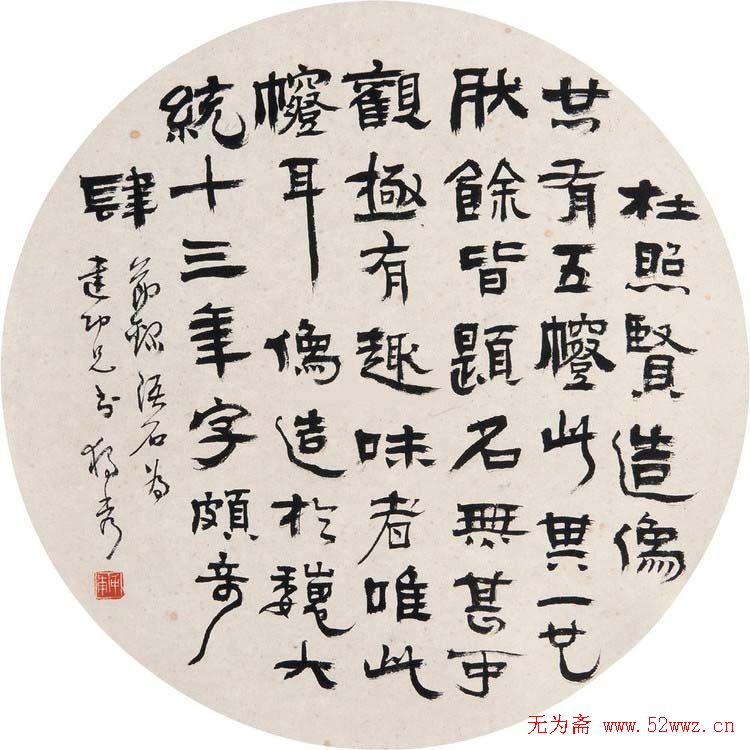 杜照賢造像
共有五此其一也
肰餘皆題名無甚可
觀極有趣味者唯此
耳像造於魏大
統十三年字頗奇
肆
節録語石為
建功兄書獨秀
无为斋 www.52wwz.cn